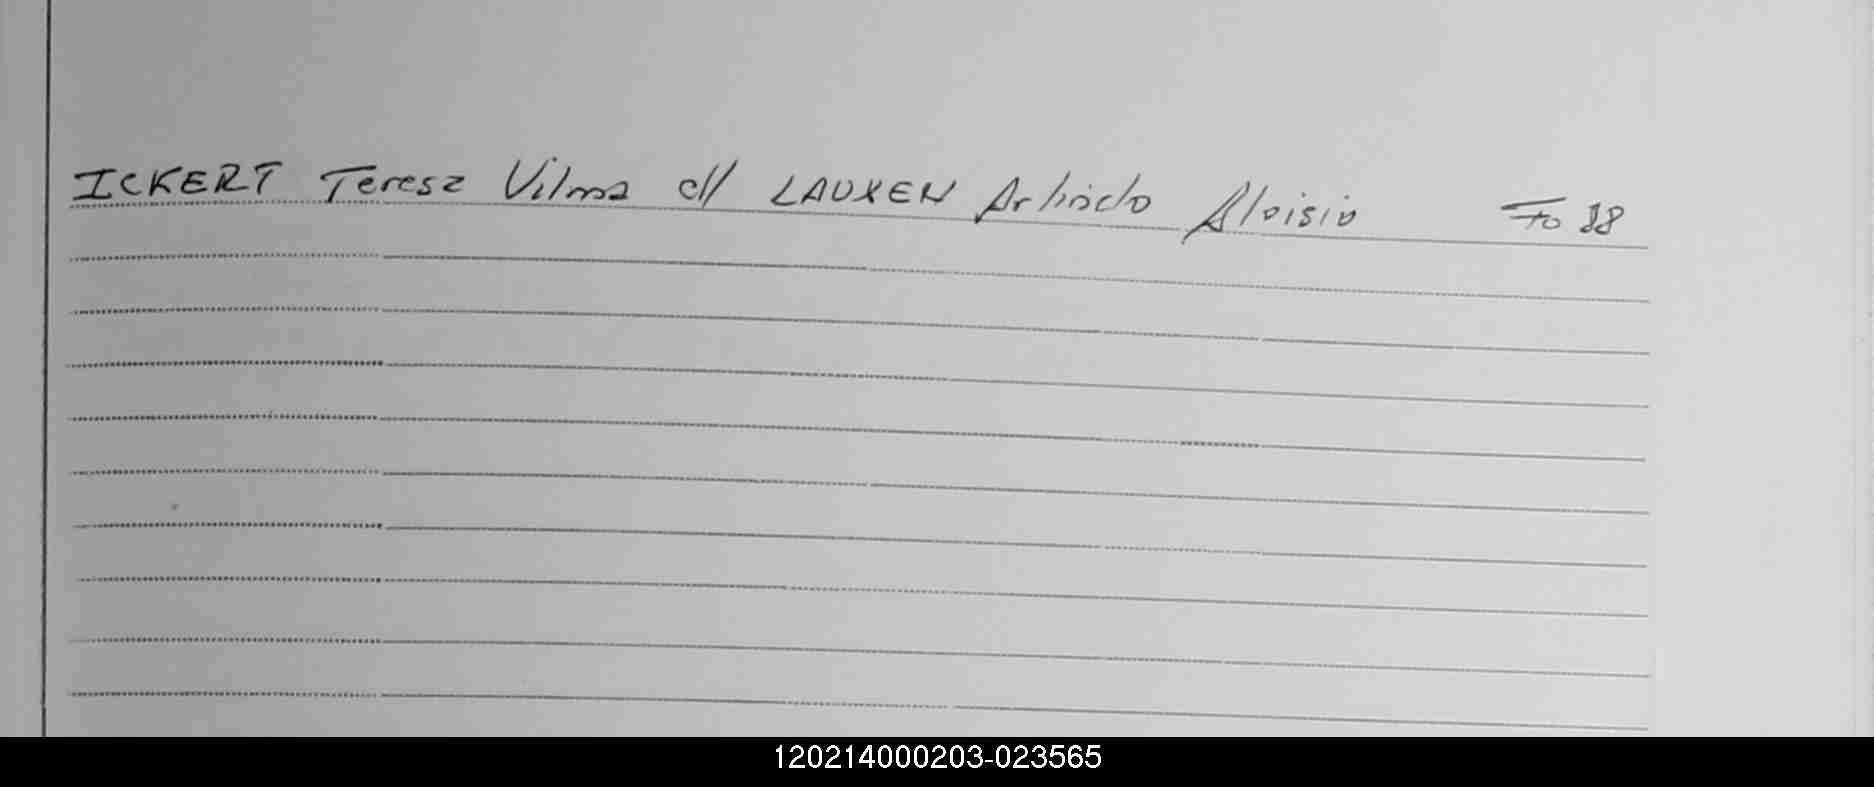 ICKERT Teresa Vilma c// LAUXEN Arlindo Aloisio Fo 38
120214000203-023565